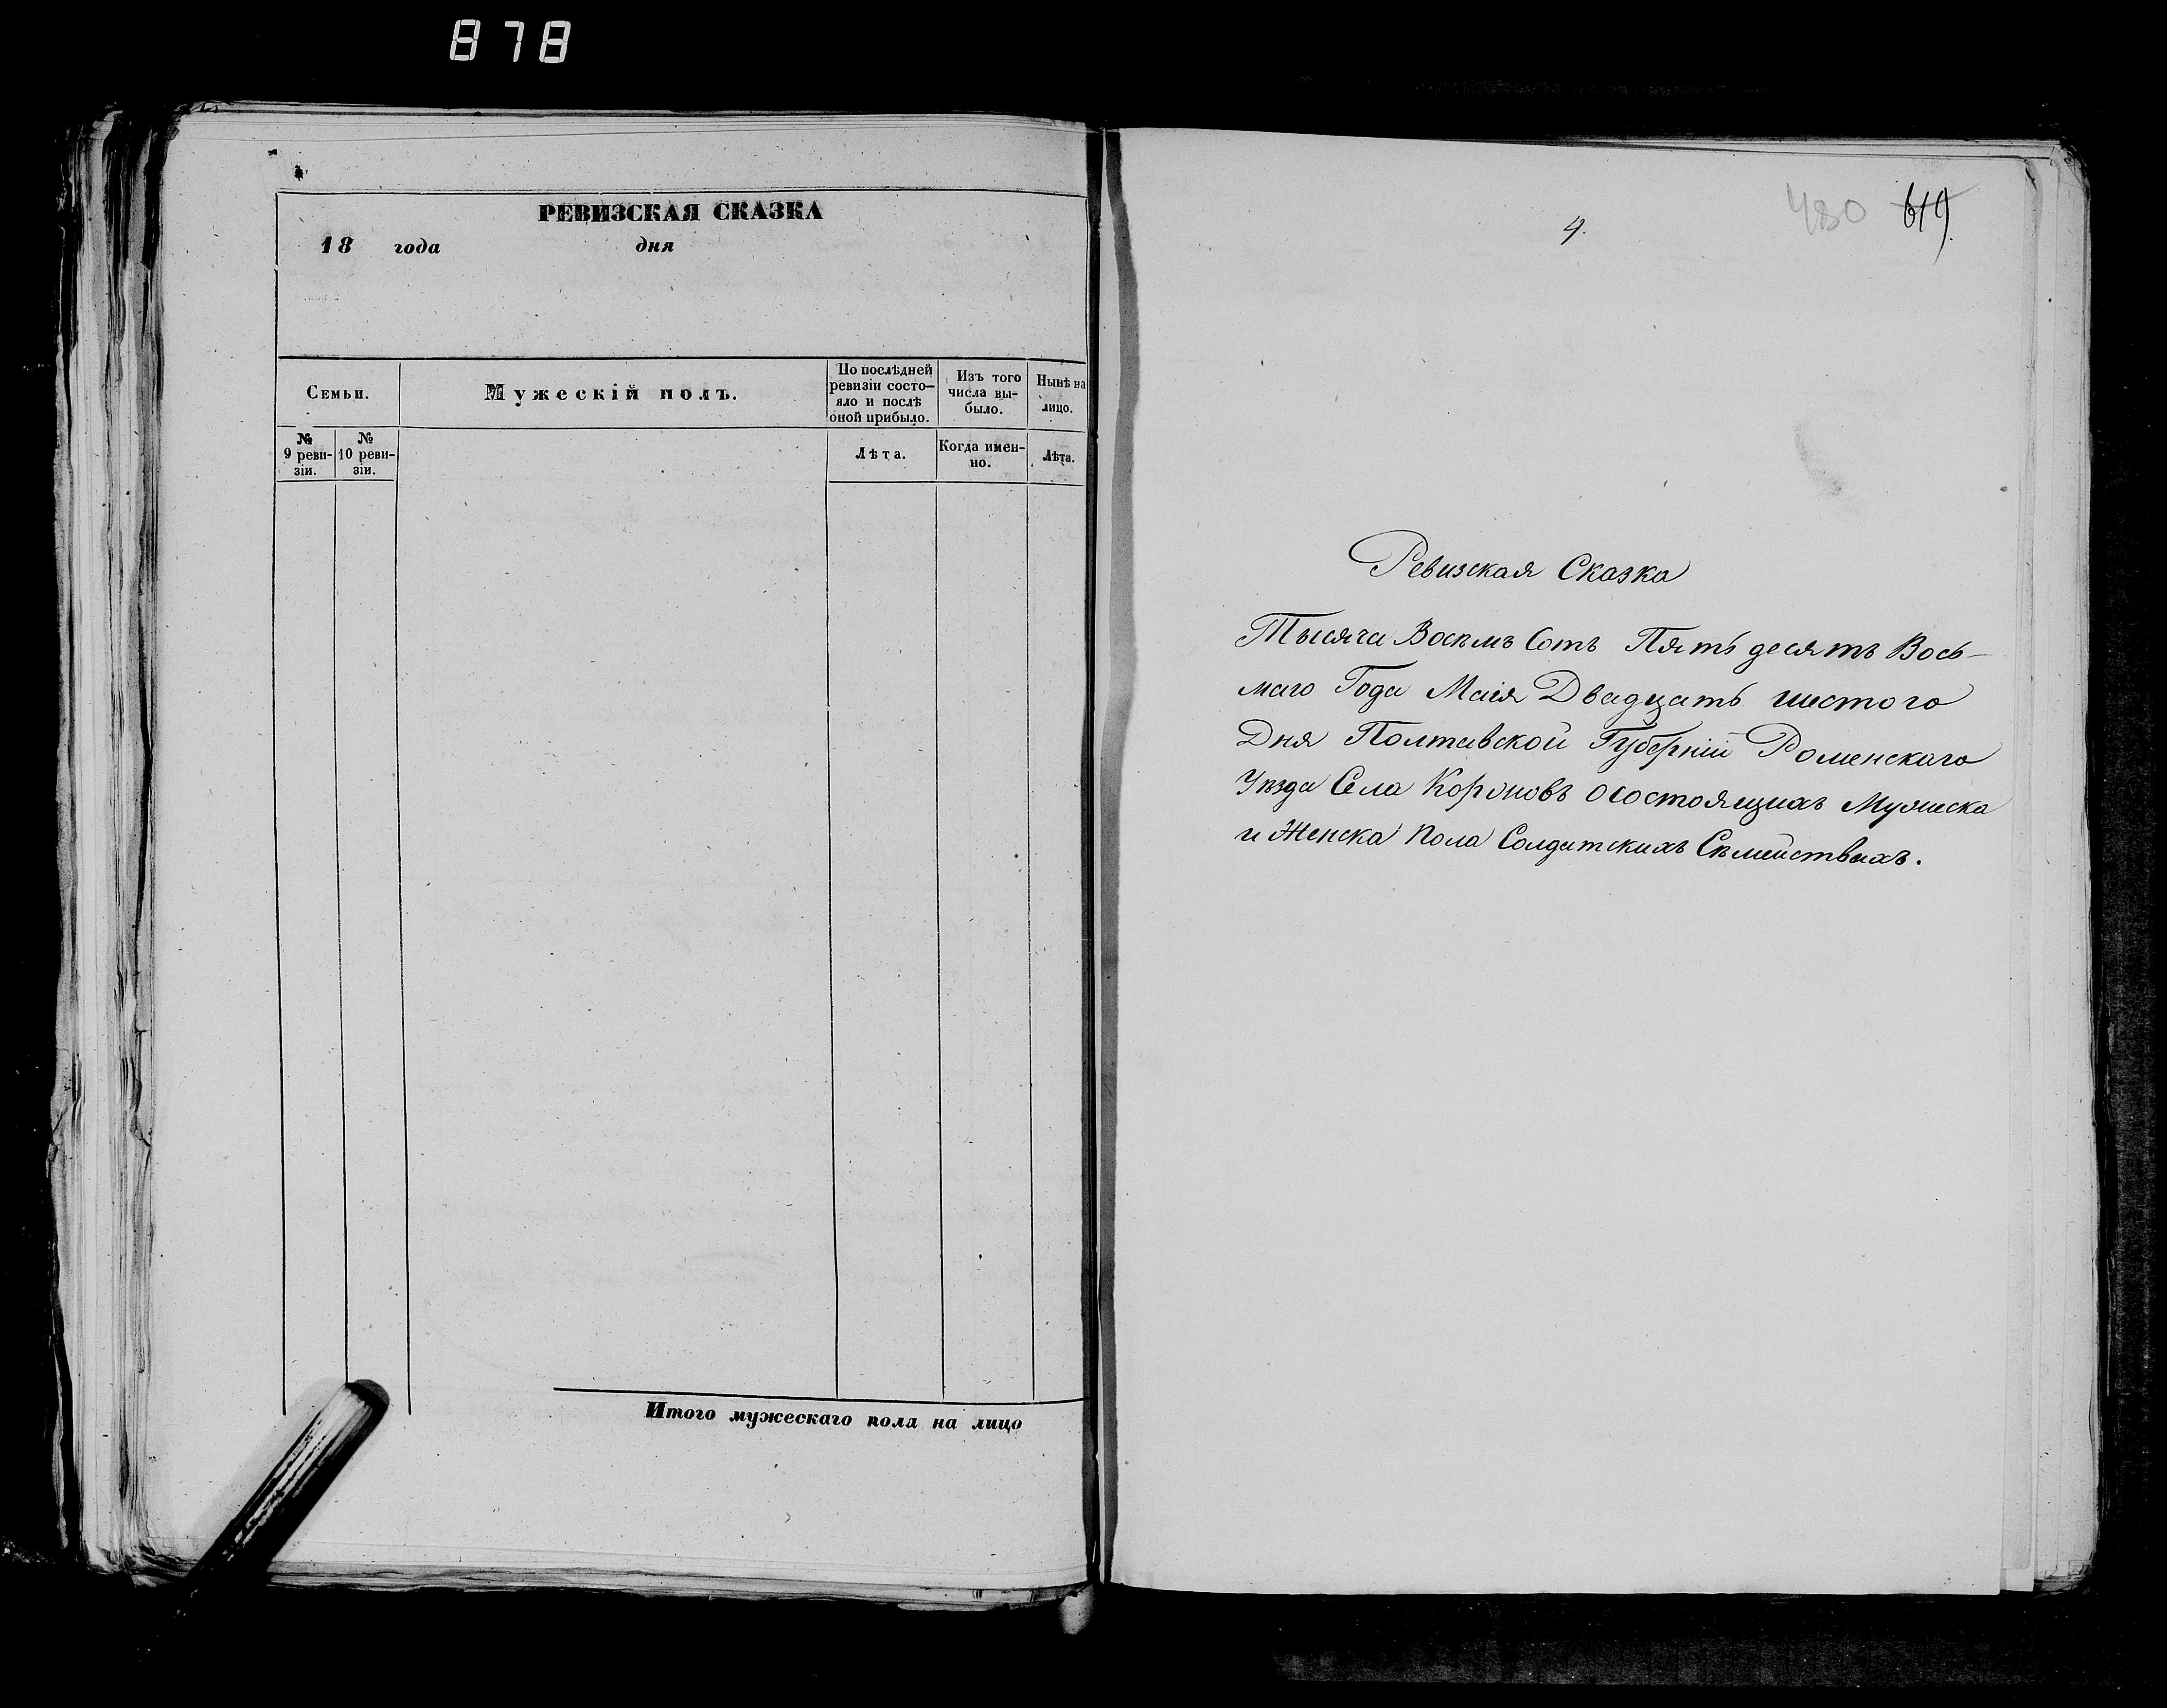 878
РЕВИЗСКАЯ СКАЗКА
18 года дня
Семьи.
Мужескій полъ.
По послѣдней
ревизіи состо-
яло и послѣ
оной прибыло.
Изъ того
числа вы-
было.
Нынѣ на
лицо.
№
9 реви-
зіи.
№
10 реви-
зіи.
Лѣта.
Когда имен-
но.
Лѣта.
Итого мужескаго пола на лицо
4.
480 619.
Ревизская Сказка
Тысяча Восемь Сотъ Пять десятъ Вось-
маго Года Маія Двадцать шестого
Дня Полтавской Губерніи Роменскаго
Уѣзда Села Корововъ о состоящихъ Мужеска
и Женска пола Солдатскихъ Сѣмействахъ.